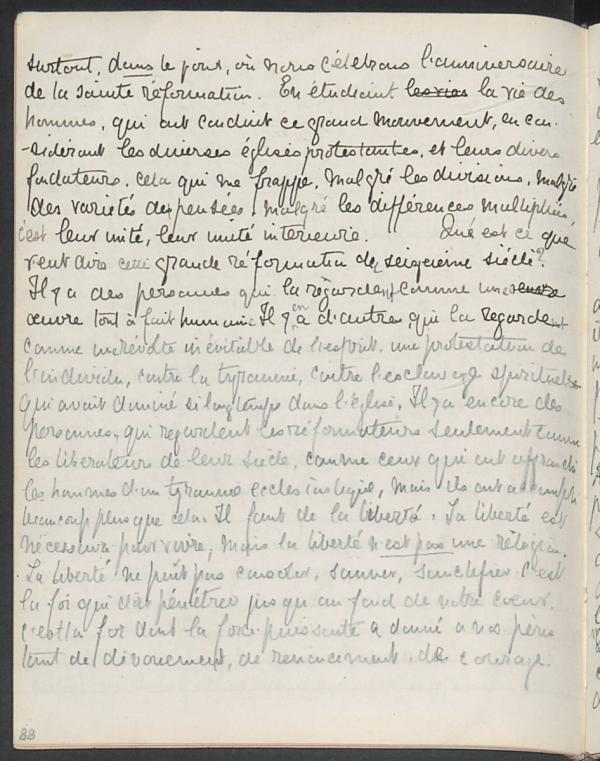 surtout, dans le jour, où nous célébrons l'anniversaire
de la sainte réformation. En étudiant les vies la vie des
hommes, qui ont conduit ce grand mouvement, en con-
-sidérant les diverses églises protestantes, et leurs divers
fondateurs, cela qui me frappe, malgré les divisions, malgré
des variétés des pensées, malgré les différences multipliés,
c'est leur unité, leur unité interieure. Qué est ce que
veut dire cette grande réformation de seizieme siécle?
Il y a des personnes qui la régardent comme une
œuvre tout à fait humaine Il y en a d'autres qui la regardent
comme une révolte inévitable de l'esprit, une protestation de
l'individu, contre la tyrannie, contre l'esclavage spirituel
qui avait dominé si longtemps dans l'église, Il y a encore des
personnes, qui regardent les réformateurs seulement comme
les libérateurs de leur siècle, comme ceux qui ont affranchi
les hommes d'un tyrannie ecclesiastique, mais ils ont accompli
beaucoup plus que cela. Il faut de la liberté. La liberté est
nécessaire pour vivre, mais la liberté n'est pas une réligion.
La liberté ne peut pas consoler, sauver, sanctifier c'est
la foi qui doit pénétrer jusqu au fond de notre coeur.
c'est la foi dont la force puissante a donné a nos pères
tant de dévouement, de renoncement, de courage.
88